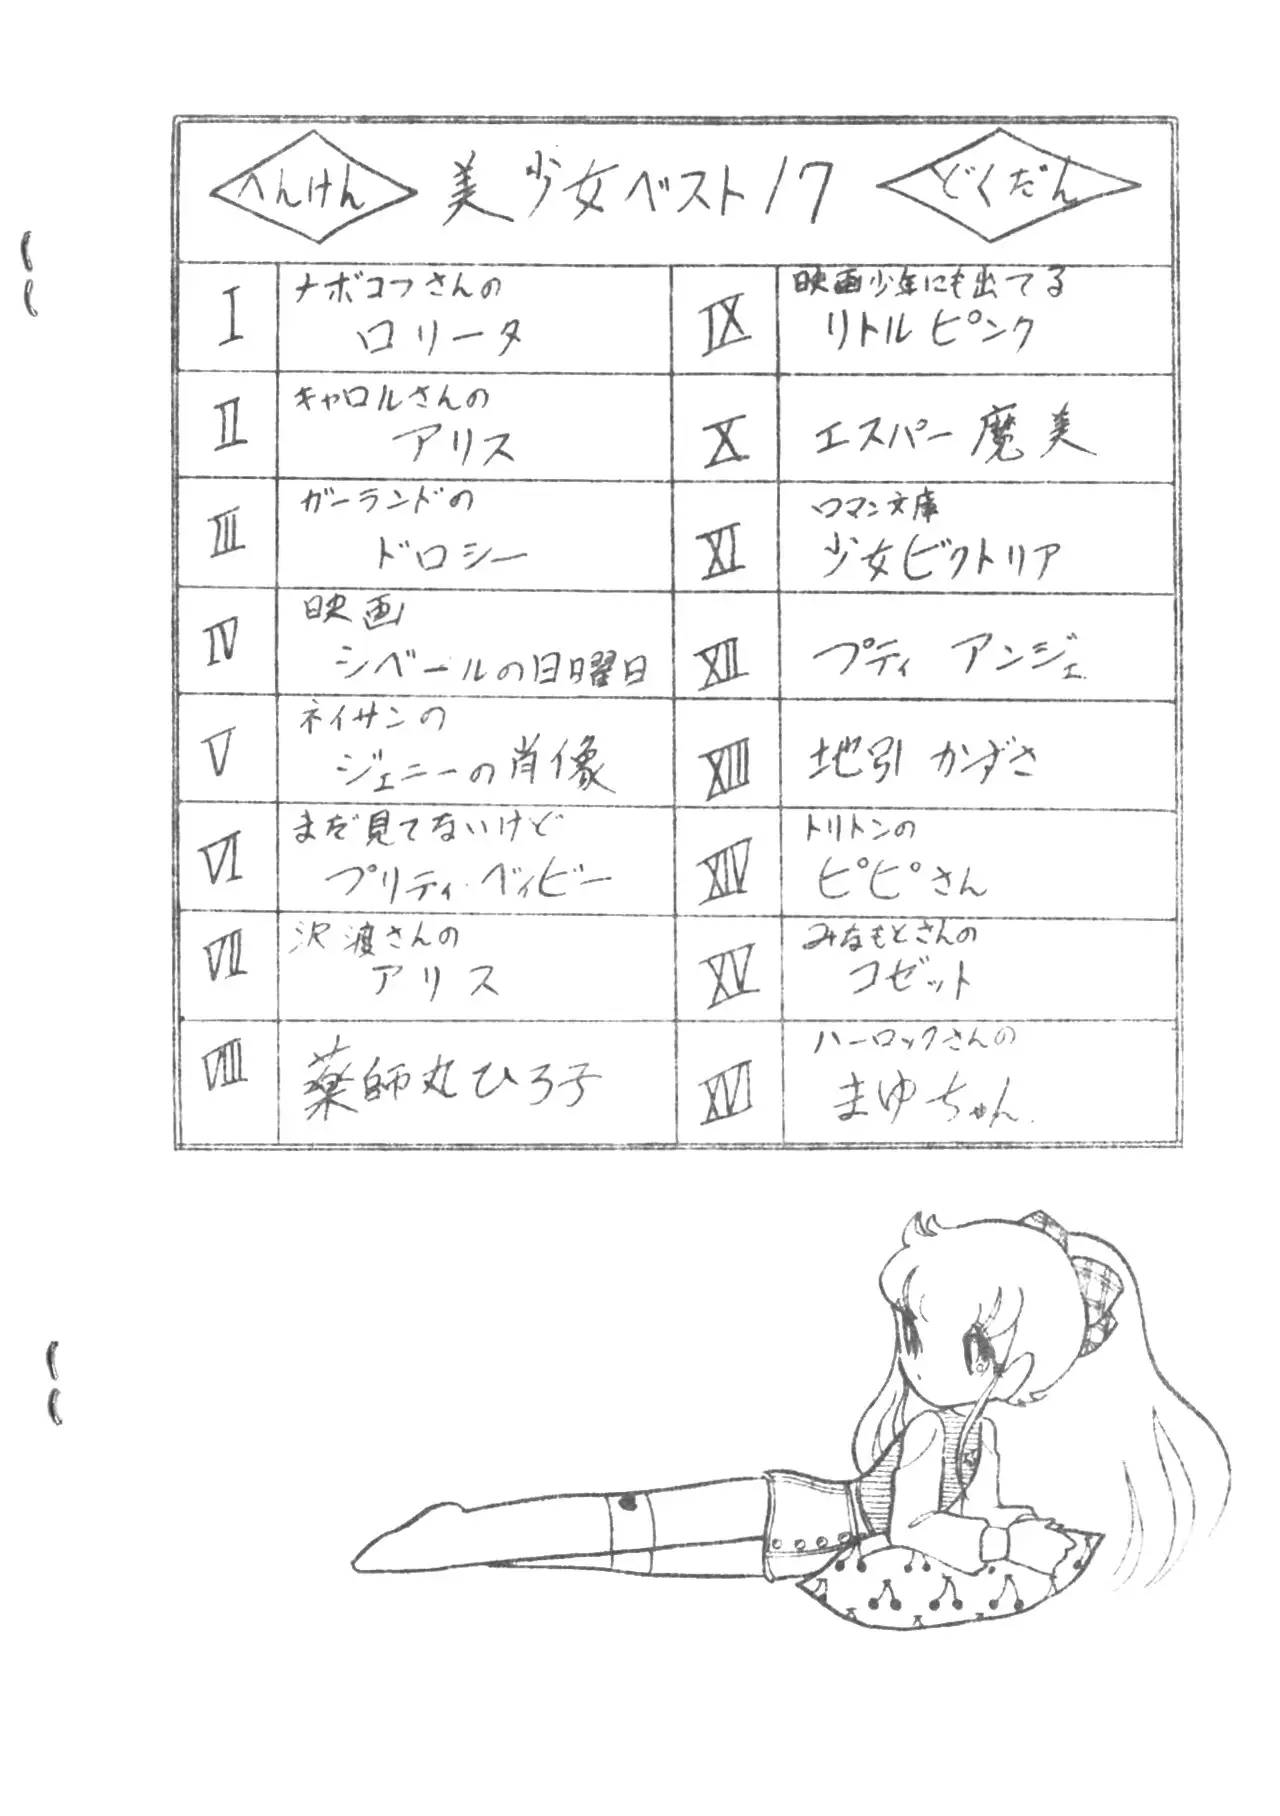 へんけん 美少女ベスト17 どくだん
I ナボコフさんの
ロリータ
II キャロルさんの
アリス
III ガーランドの
ドロシー
IV 映画
シベールの日曜日
V ネイサンの
ジェニーの肖像
VI まだ見てないけど
プリティ・ベイビー
VII 沢渡さんの
アリス
VIII 薬師丸ひろ子
IX 映画少年にも出てる
リトルピンク
X エスパー魔美
XI ロマン文庫
少女ビクトリア
XII プティ アンジェ
XIII 地引かずさ
XIV トリトンの
ピピさん
XV みなもとさんの
コゼット
XVI ハーロックさんの
まゆちゃん